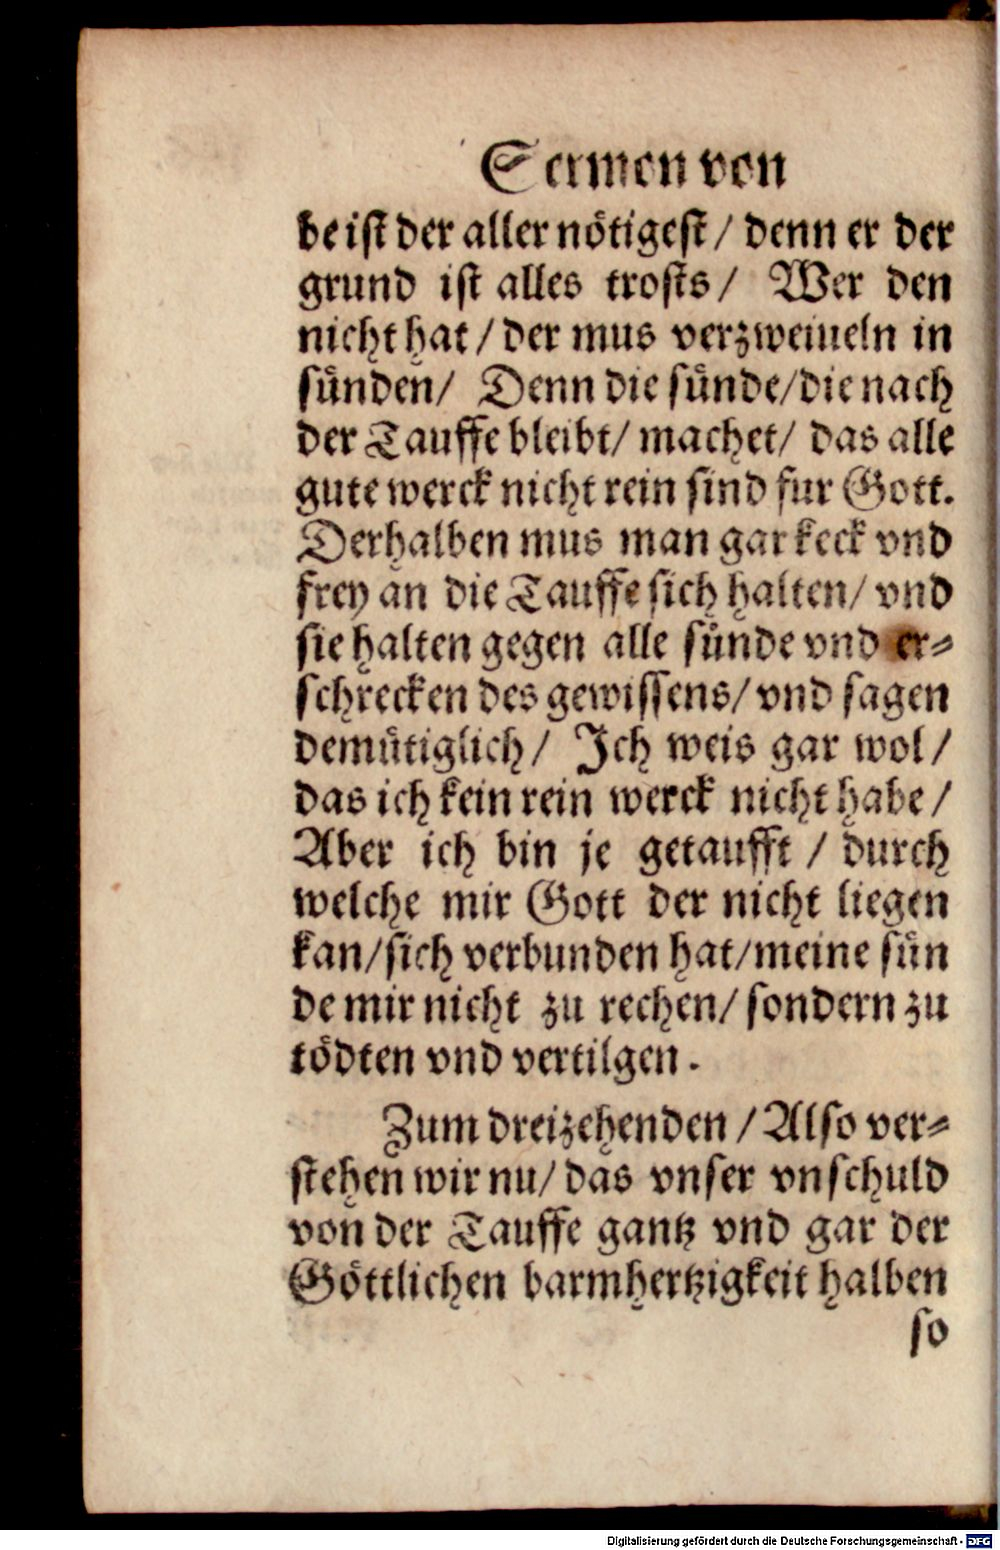 Sermon von
be ist der aller nötigest / denn er der
grund ist alles trosts / Wer den
nicht hat / der mus verzweiueln in
sünden / Denn die sünde / die nach
der Tauffe bleibt / machet / das alle
gute werck nicht rein sind fur Gott.
Derhalben mus man gar keck vnd
frey an die Tauffe sich halten / vnd
sie halten gegen alle sünde vnd er-
schrecken des gewissens / vnd sagen
demütiglich / Jch weis gar wol /
das ich kein rein werck nicht habe /
Aber ich bin je getaufft / durch
welche mir Gott der nicht liegen
kan / sich verbunden hat / meine sün
de mir nicht zu rechen / sondern zu
tödten vnd vertilgen.
Zum dreizehenden / Also ver-
stehen wir nu / das vnser vnschuld
von der Tauffe gantz vnd gar der
Göttlichen barmhertzigkeit halben
so
Digitalisierung gefördert durch die Deutsche Forschungsgemeinschaft - DFG